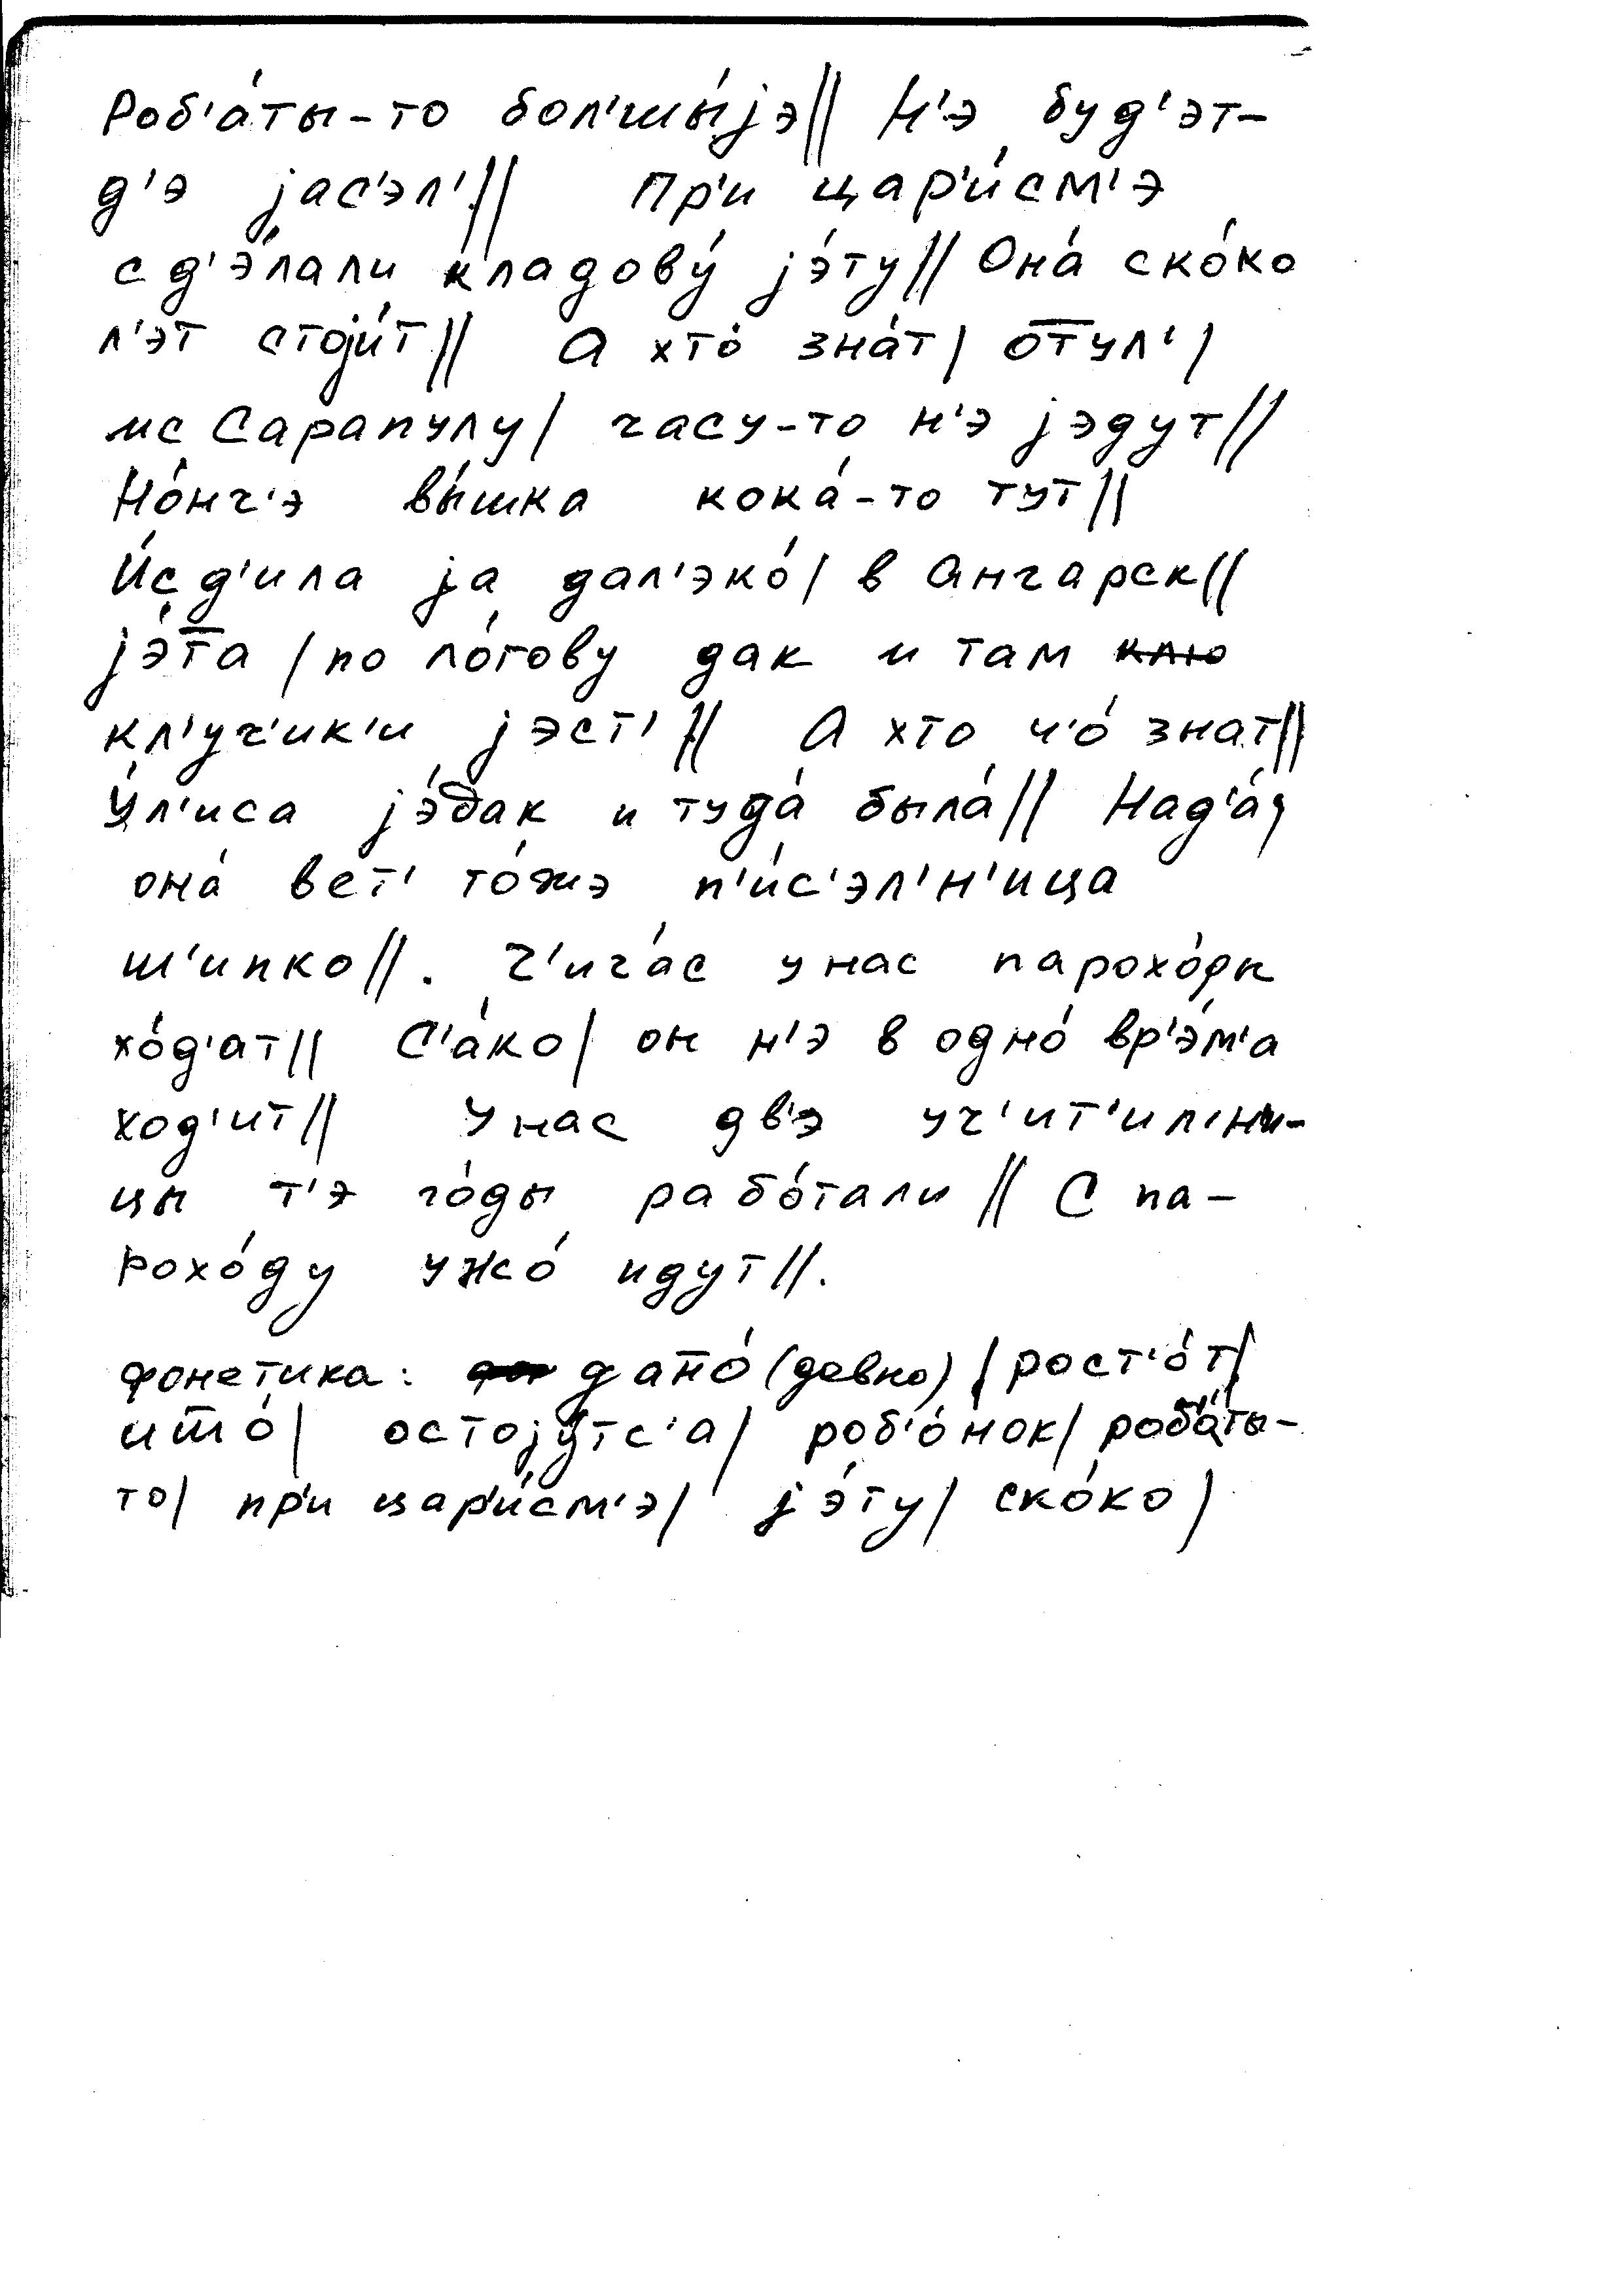 Роб'а́ты-то бол'шы́јэ|| Н'э буд'эт-
д'э јас'эл'|| Пр'и цар'и́см'э
сд'э́лали кладову́ јэ́ту|| Она́ ско́ко
л'эт стоји́т|| А хто́ зна́т| от̄ул'|
ис Сарапулу| часу-то н'э јэдут||
Но́нч'э вы́шка кока́-то тут||
И́сд'ила ја дал'эко́| в Ангарск||
јэ́т̄а |по ло́гову дак и там ~~клю~~
кл'уч'ик'и јэст'|| А хто ч'о́ знат||
У́л'иса јэ́дак и туда́ была́|| Над'а́,
она́ вет' то́жэ п'и́с'эл'н'ица
ш'ипко||. Ч'ича́с у нас парохо́ды
хо́д'ат|| С'а́ко| он н'э в одно́ вр'э́м'а
ход'ит|| У нас дв'э уч'ит'ил'ни-
цы т'э го́ды рабо́тали|| С па-
рохо́ду ужо́ идут||.
фонетика: дан̄о́ (давно)| рост'о́т|
ишо́| остоју́тс'а| роб'о́нок| роб'а́ты-
то| пр'и цар'и́см'э| јэ́ту| ско́ко|